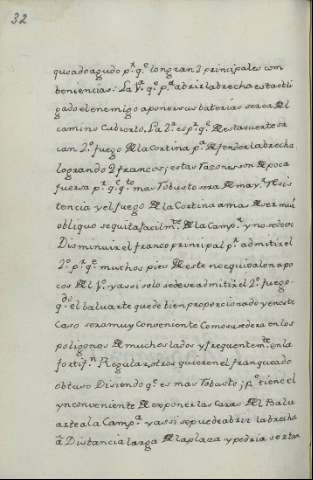 32
gusado agudo p.r q.e logran 2 principales com
beniencias: La 1.a q.e p.a abrir la brecha esta obli
gado el enemigo a poner sus baterias serca del
camino Cubierto, La 2.a es p.r q.e de esta suerte sa
can 2.o fuego de la Cortina p.a defender la brecha
logrando 2 francos; estas rasones son de poca
fuersa p.r q.e q.to mas robusto sera de may.r resis
tencia y el fuego de la Cortina a mas de ser mui
obliquo se quita facilm.te de la Camp.a y no se deve
Disminuir el franco principal p.r admitir el
2.o p.r q.e muchos pies de este no equivalen a po
cos del 1.o y assi solo se deve admitir el 2.o fuego
q.do el baluarte quede bien proporcionado y en este
Caso sera muy Conveniente Como sucedera en los
poligonos de muchos lados y frequentem.te en la
fortif.n Regular, otros quieren el franqueado
obtuso Disiendo q.e es mas robusto; p.o tiene el
ynconveniente de exponer las Caras del Balu
arte a la Camp.a y assi se puede abrir la brecha
a Distancia larga de la plaza y podria ser tan